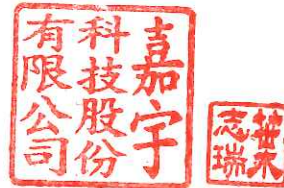 嘉宇
科技股份
有限公司
葉
志瑞